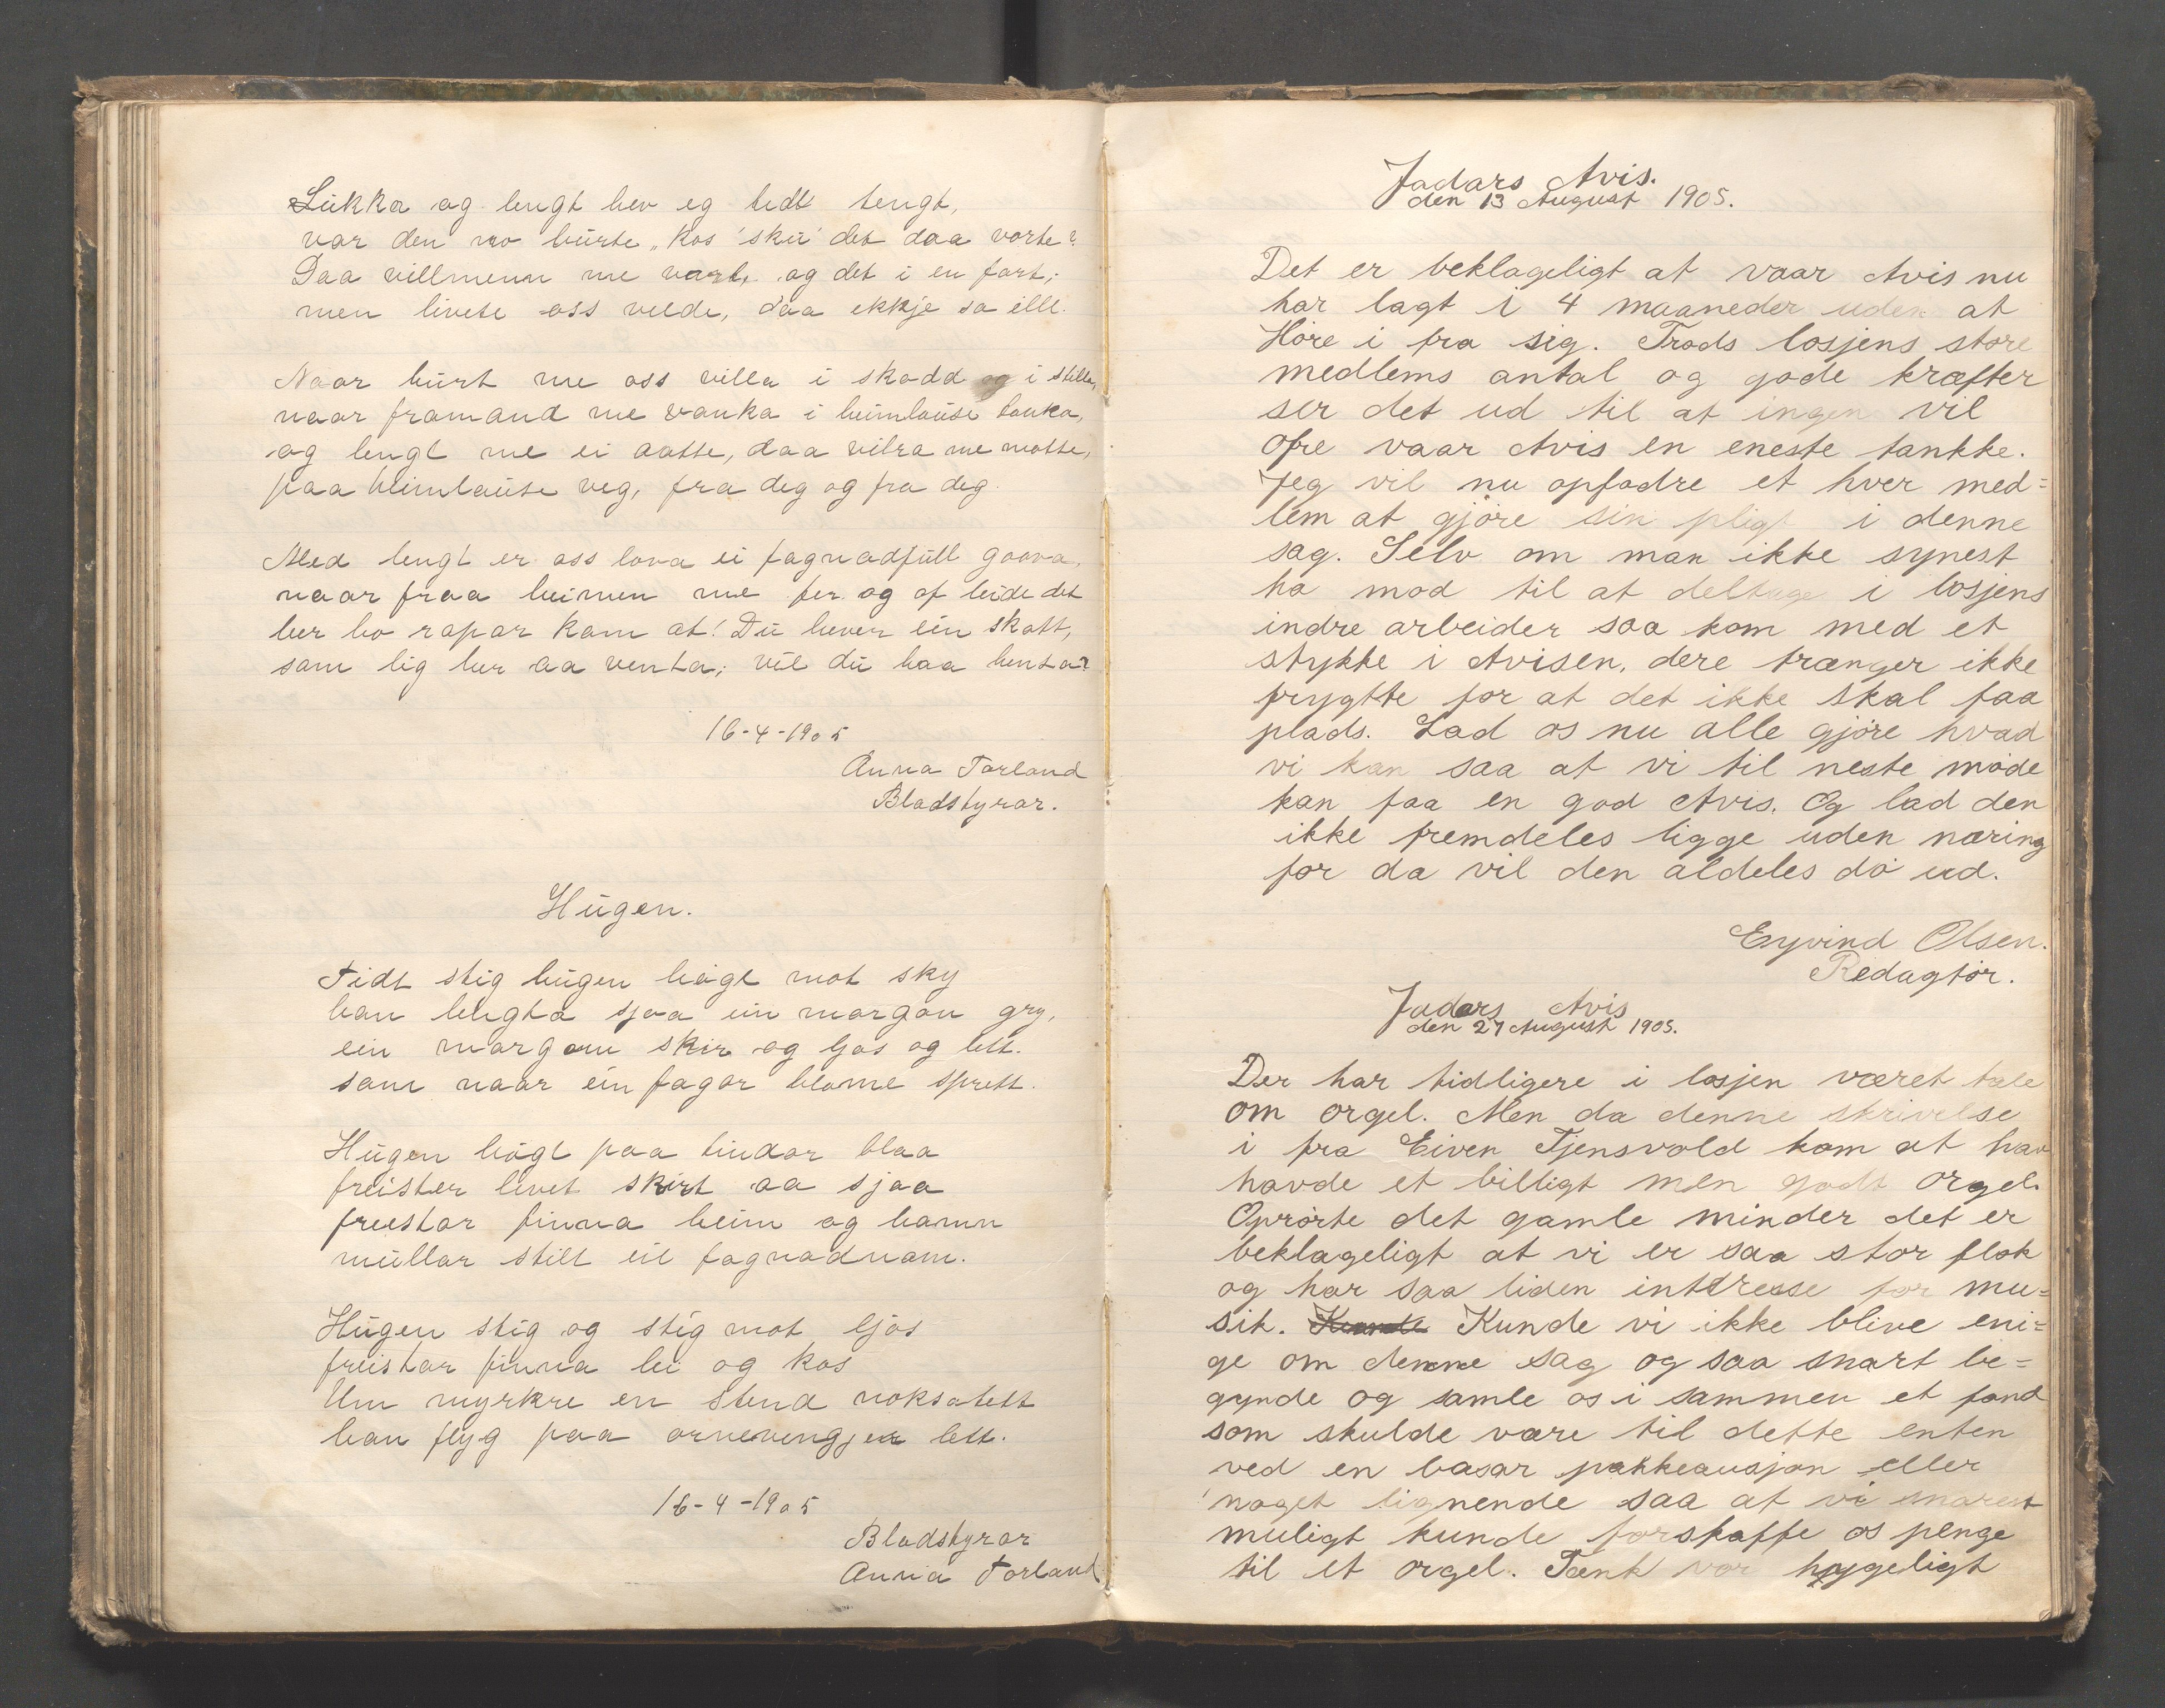 Lukka og lengt hev eg tidt tengt,
var den no burte, "kos sku' det daa vorte?
Daa villmenn me vart, og det i en fart;
men livete oss velde, daa ekkje so ille.
Naar burt me oss villa i skodd og i stilla,
naar framand me vanka i heimlause tanka,
og lengt me ei aatte, daa vilra me motte,
paa heimlause veg, fra deg og fra deg.
Med lengt er oss lova ei fagnadfull gaava,
naar fraa heimen me fer og af leide det
ber ho ropar kom at! Du hever ein skatt,
som lig her aa venta; vil du haa henta?
16-4-1905
Anna Torland
Bladstyrar.
Hugen.
Tidt stig hugen høgt mot sky
han lengta sjaa ein morgon gry,
ein morgon skir og ljos og lett.
som naar ein fager blome sprett.
Hugen høgt paa tindar blaa
freistar livet skirt aa sjaa
freistar finna heim og hamn
mullar stilt eit fagnadnam.
Hugen stig og stig mot ljos
freistar finna lei og kos
Um myrkre en stend noksatett
han flyg paa ørnevengjer lett.
16-4-1905
Bladstyrar
Anna Torland
Jadars Avis.
den 13 August 1905.
Det er beklageligt at vaar Avis nu
har lagt i 4 maaneder uden at
Høre i fra sig. Trods losjens store
medlems antal og gode kræfter
ser det ud til at ingen vil
ofre vaar Avis en eneste tankke.
Jeg vil nu opfodre et hver med=
lem at gjøre sin pligt i denne
sag. Selv om man ikke synest
ha mod til at deltage i losjens
indre arbeider saa kom med et
stykke i Avisen, dere trænger ikke
frygtte for at det ikke skal faa
plads. Lad os nu alle gjøre hvad
vi kan saa at vi til neste møde
kan faa en god Avis. Og lad den
ikke fremdeles ligge uden næring
for da vil den aldeles dø ud.
Eyvind Olsen.
Redagtør.
Jadars Avis
den 27 August 1905.
Der har tidligere i losjen været tale
om orgel. Men da denne skrivelse
i fra Eiven Tjensvold kom at han
havde et billigt men godt orgel.
Oprørte det gamle minder det er
beklageligt at vi er saa stor flok
og har saa liden intdresse for mu=
sik. Kunde Kunde vi ikke blive eni=
ge om denne sag og saa snart be=
gynde og samle os i sammen et fond
som skulde være til dette enten
ved en basar pakkeausjon eller
noget lignende saa at vi snarest
muligt kunde forskaffe os penge
til et orgel. Tænk vor hygeligt